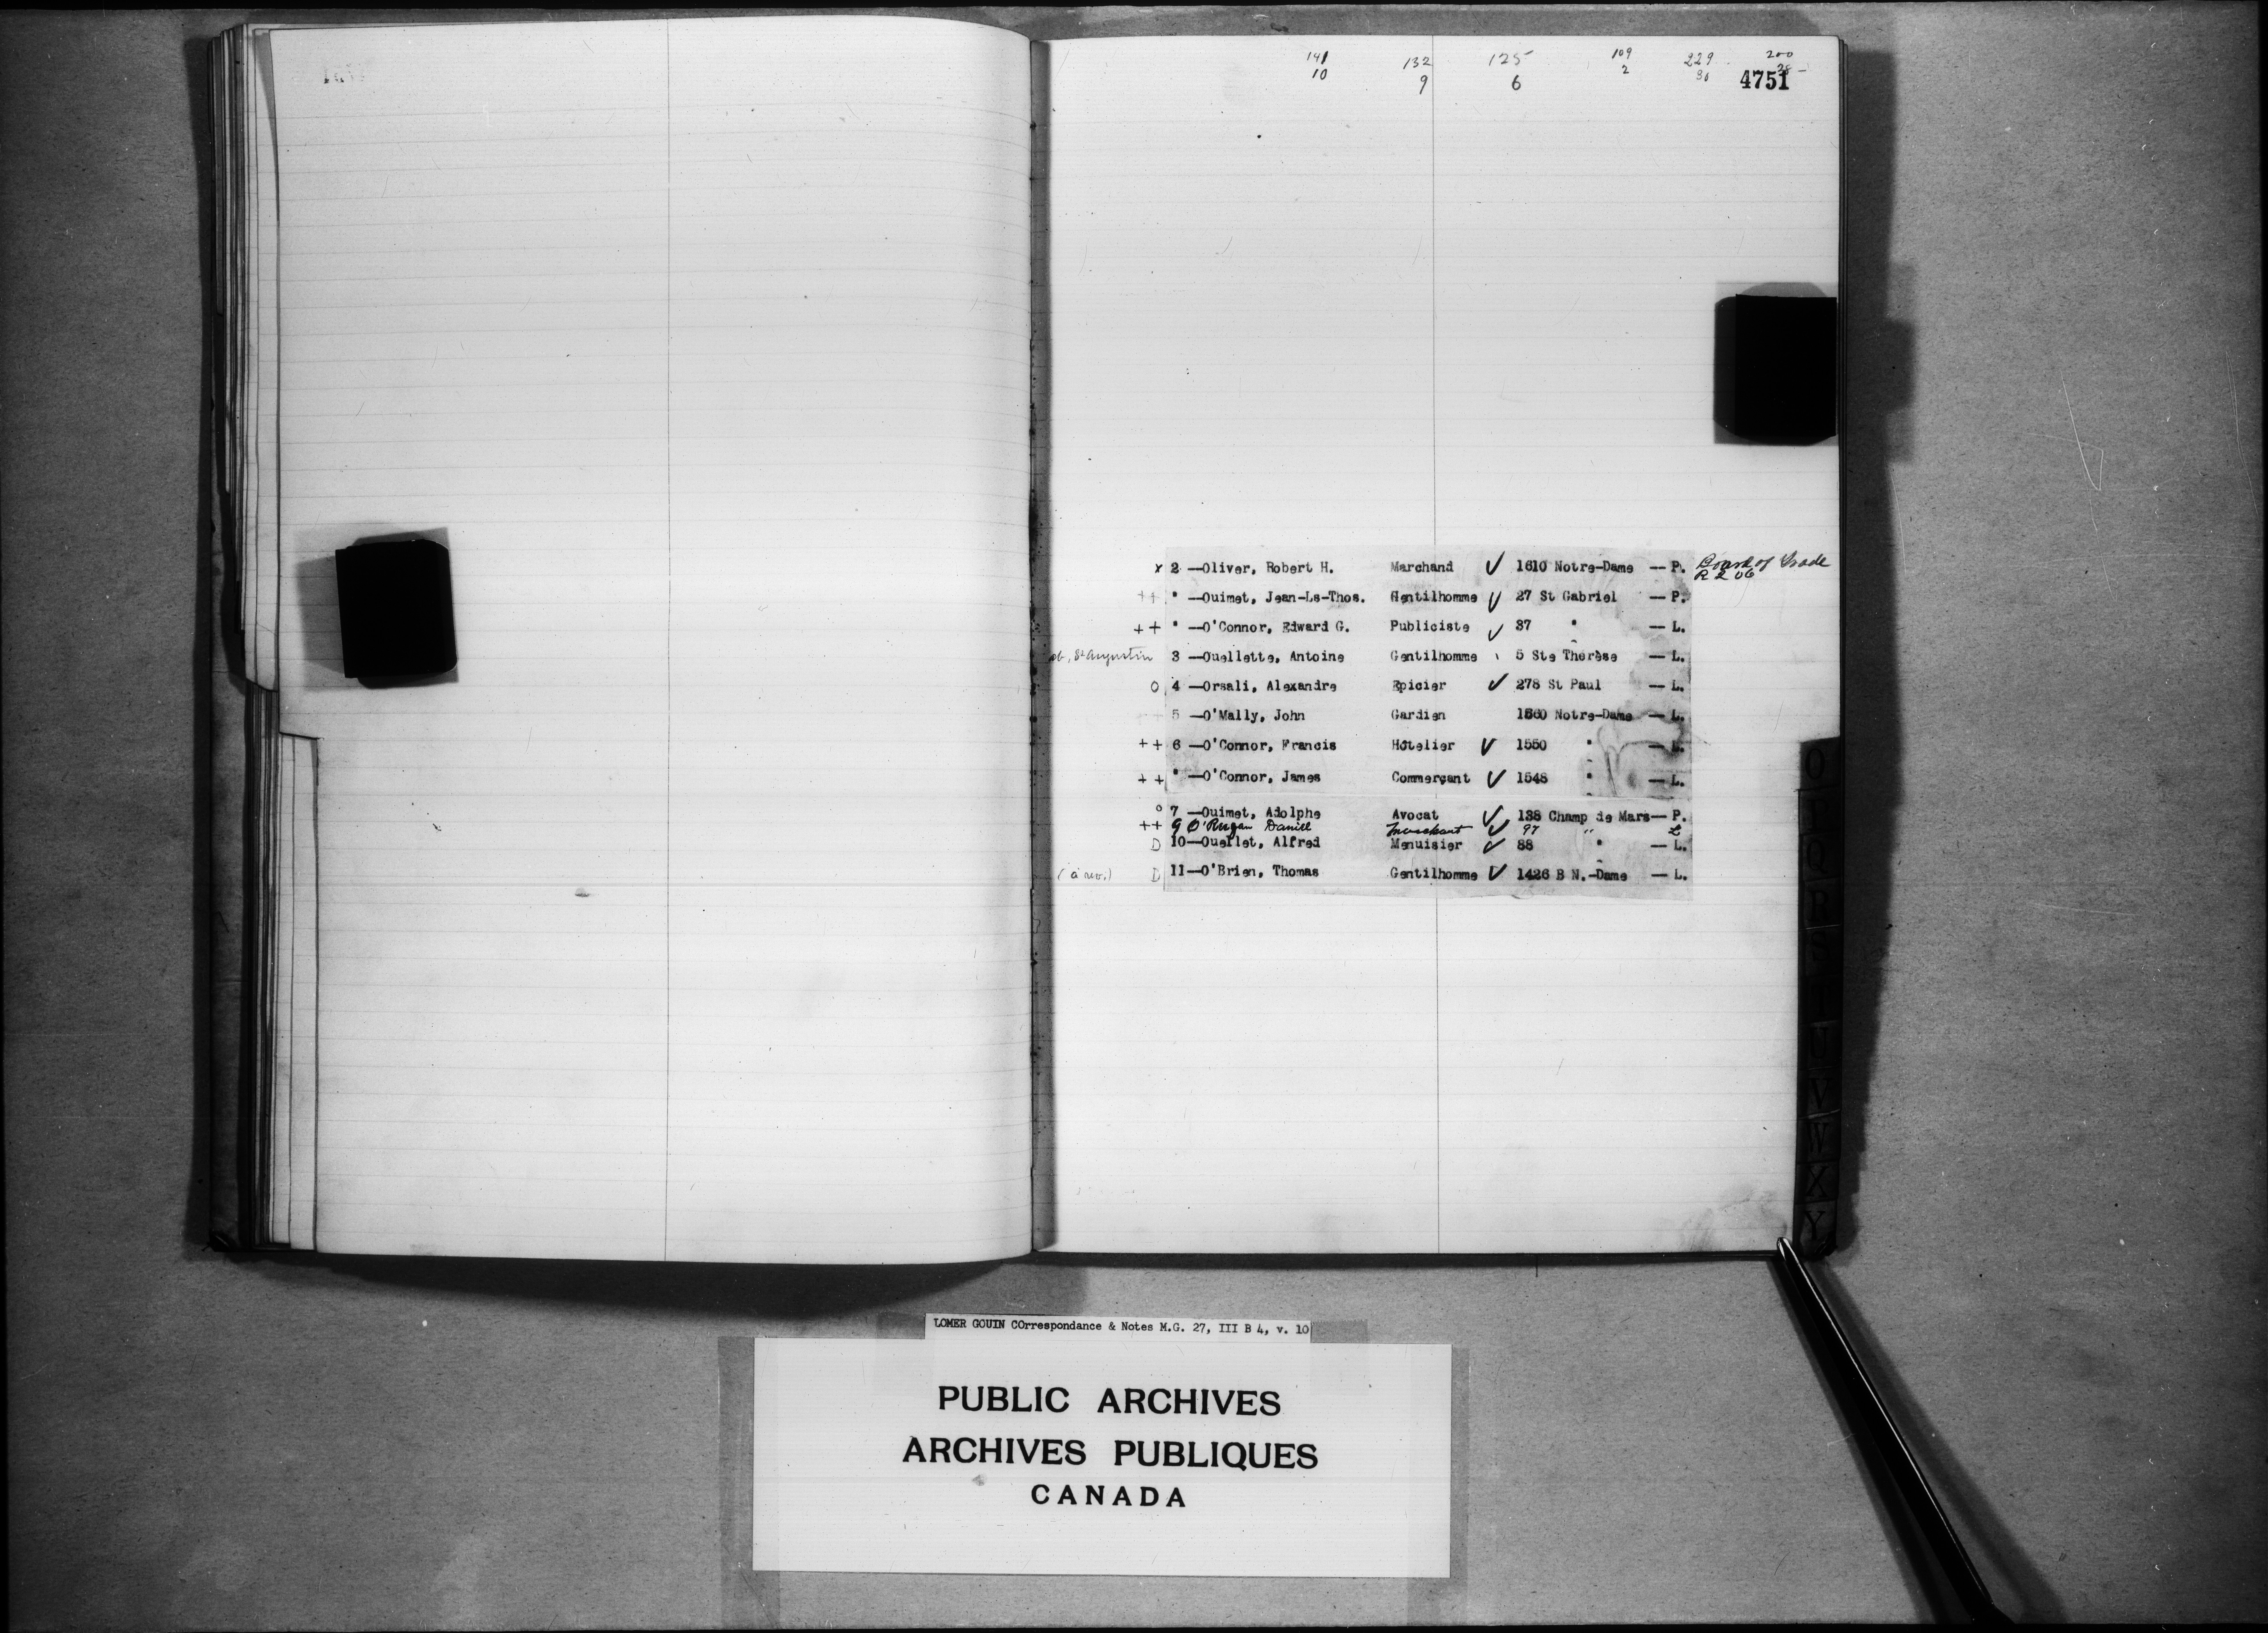 141 132 125 109 229 200
10 9 6 2 30 28
4751
x 2 —Oliver, Robert H. Marchand ✓ 1610 Notre-Dame — P. Board of Trade
R 206
++ " —Ouimet, Jean-Ls-Thos. Gentilhomme ✓ 27 St Gabriel — P.
++ " —O'Connor, Edward G. Publiciste ✓ 37 " — L.
St Augustin 3 —Ouellette, Antoine Gentilhomme 5 Ste Thérèse — L.
o 4 —Orsali, Alexandre Epicier ✓ 278 St Paul — L.
5 —O'Mally, John Gardien 1560 Notre-Dame — L.
++ 6 —O'Connor, Francis Hôtelier ✓ 1550 " — L.
++ " —O'Connor, James Commerçant ✓ 1548 " — L.
o 7 —Ouimet, Adolphe Avocat ✓ 138 Champ de Mars— P.
++ 9 O'Regan Daniel Merchant ✓ 97 " L
D 10—Ouellet, Alfred Menuisier ✓ 88 " — L.
D 11—O'Brien, Thomas Gentilhomme ✓ 1426 B N.-Dame — L.
O
P
Q
R
S
T
U
V
W
X
Y
LOMER GOUIN COrrespondance & Notes M.G. 27, III B 4, v. 10
PUBLIC ARCHIVES
ARCHIVES PUBLIQUES
CANADA